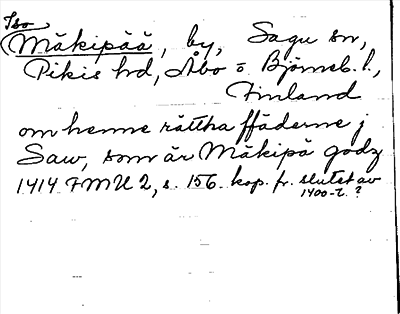 Iso
(Mäkipää, by, Sagu sn,
Pikis hd, Åbo o Björneb. l.,
Finland
om henne rättha ffäderne j
Saw, som är Mäkipä godz
1414 FMU 2, s. 156 kop. fr. slutet av
1400-t. ?